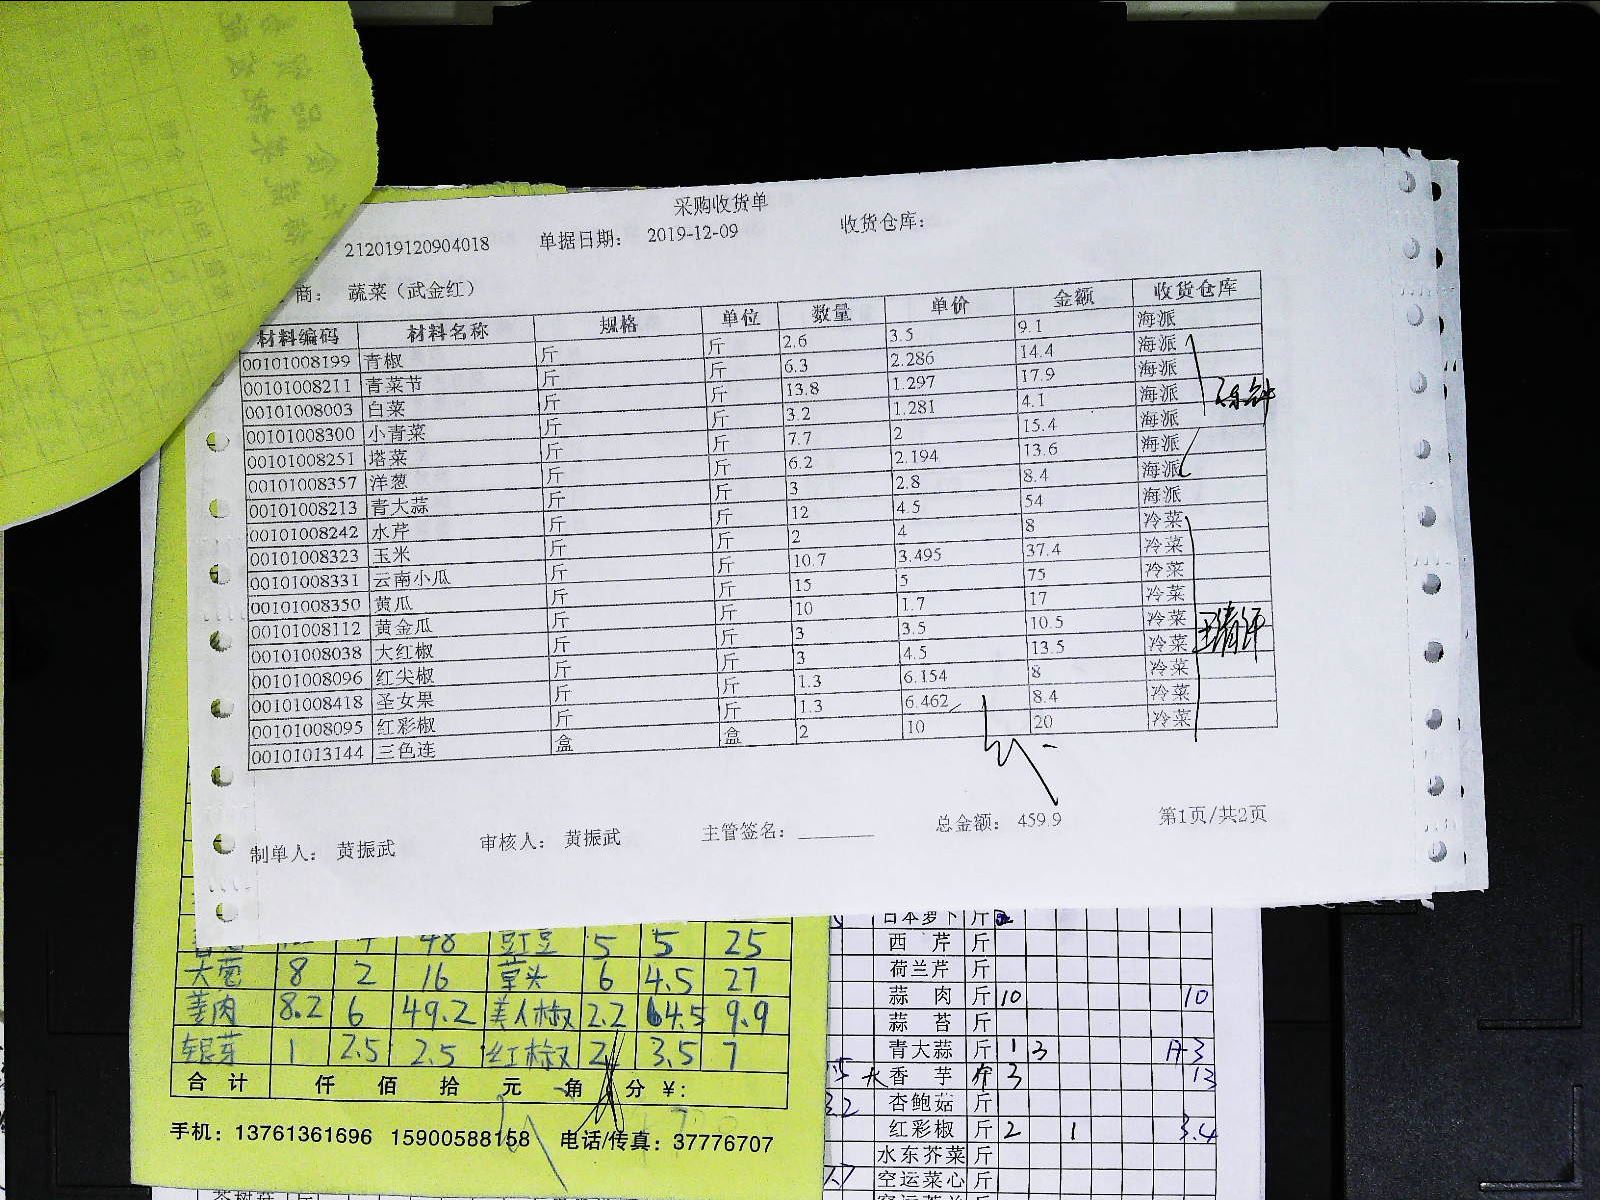 采购收货单
212019120904018 单据日期： 2019-12-09 收货仓库：
商： 蔬菜（武金红）
材料编码 材料名称 规格 单位 数量 单价 金额 收货仓库
00101008199 青椒 斤 斤 2.6 3.5 9.1 海派
00101008211 青菜节 斤 斤 6.3 2.286 14.4 海派
00101008003 白菜 斤 斤 13.8 1.297 17.9 海派
00101008300 小青菜 斤 斤 3.2 1.281 4.1 海派
00101008251 塔菜 斤 斤 7.7 2 15.4 海派
00101008357 洋葱 斤 斤 6.2 2.194 13.6 海派
00101008213 青大蒜 斤 斤 3 2.8 8.4 海派
00101008242 水芹 斤 斤 12 4.5 54 海派
00101008323 玉米 斤 斤 2 4 8 冷菜
00101008331 云南小瓜 斤 斤 10.7 3.495 37.4 冷菜
00101008350 黄瓜 斤 斤 15 5 75 冷菜
00101008112 黄金瓜 斤 斤 10 1.7 17 冷菜
00101008038 大红椒 斤 斤 3 3.5 10.5 冷菜
00101008096 红尖椒 斤 斤 3 4.5 13.5 冷菜
00101008418 圣女果 斤 斤 1.3 6.154 8 冷菜
00101008095 红彩椒 斤 斤 1.3 6.462 8.4 冷菜
00101013144 三色连 盒 盒 2 10 20 冷菜
制单人： 黄振武 审核人： 黄振武 主管签名： 总金额： 459.9 第1页/共2页
48 豇豆 5 5 25
大葱 8 2 16 草头 6 4.5 27
姜肉 8.2 6 49.2 美人椒 2.2 4.5 9.9
银芽 1 2.5 2.5 红椒 2 3.5 7
合计 仟 佰 拾 元 角 分 ￥：
手机：13761361696 15900588158 电话/传真：37776707
日本萝卜 斤
西芹 斤
荷兰芹 斤
蒜肉 斤 10 10
蒜苔 斤
青大蒜 斤 1 3
香芋 3 13
杏鲍菇 斤
红彩椒 斤 2 1 3.4
水东芥菜 斤
空运菜心 斤